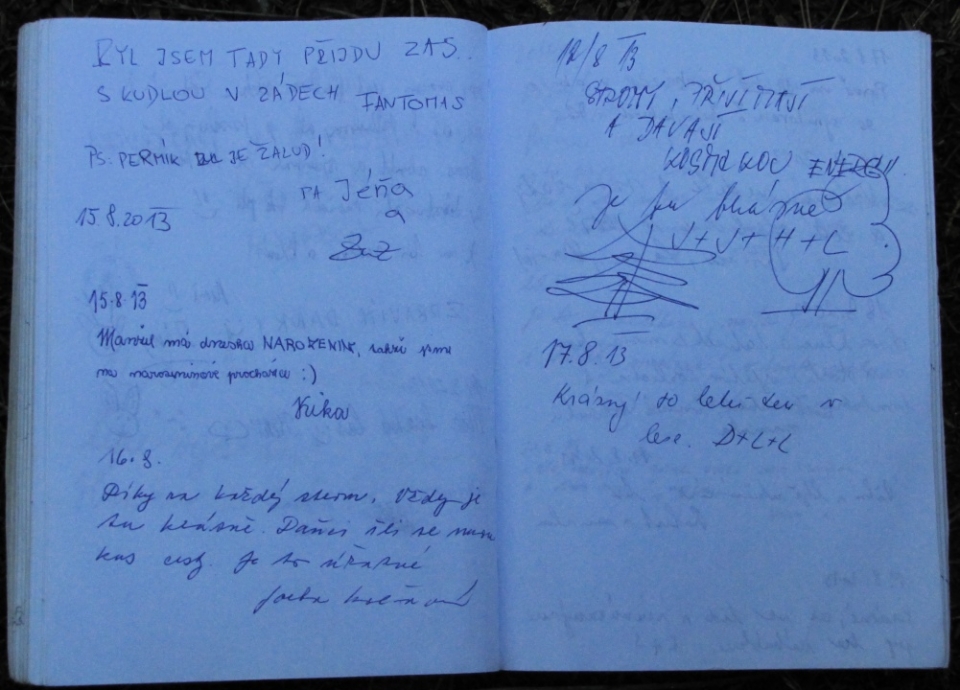 BYL JSEM TADY PŘIJDU ZAS..
S KUDLOU V ZÁDECH FANTOMAS
PS: PERNÍK JE ŽALUD!
PA Jéňa
a
Zuz
15.8.2013
15.8.13
má dneska NAROZENINY, takže jsme
na narozeninové procházce :)
Kika
16.8.
Díky za každý strom. Vždy je
tu krásně. Daňci šli se mnou
kus cesty. Je to úžasné
17/8 13
STROMY, PŘIJÍMAJÍ
A DÁVAJÍ
KOSMICKOU ENERGII
Je tu krásně
J+J+H+L
17.8.13
Krásný to letní den v
lese. D+L+L